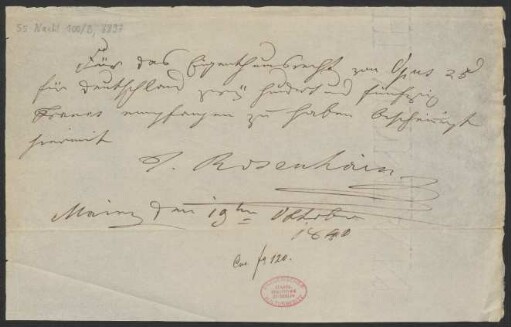 55 Nachl 100/B, 
Für das Eigenthumsrecht von Opus 25
für Deutschland zwei hundert und fünfzig
Francs empfangen zu haben bescheinigt
hiermit
J. Rosenhain
Mainz den 19ten Oktober
1840
fl 120.